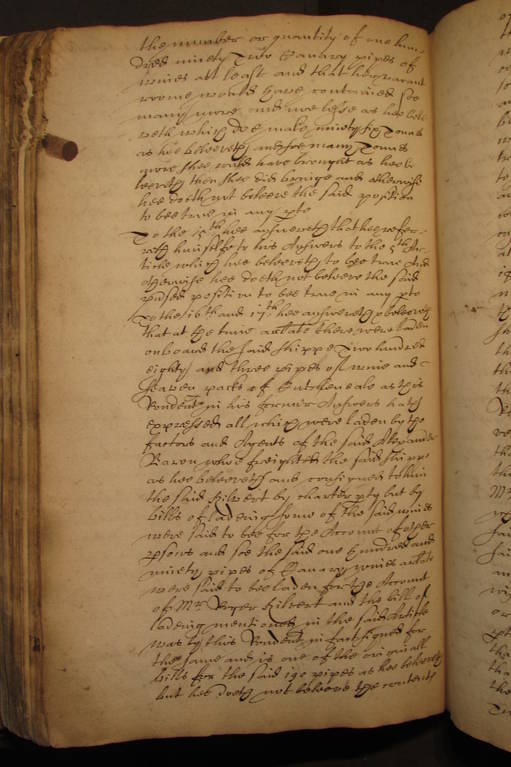 the number or quantity of one hun-
dred ninety Two Canary pipes of
wines att least and that her vacant
roome would have conteined soe
many more and we lesse as hee belee
veth which doe make ninety six Tonns
as hee beleeveth and soe many Tonns
more shee would have brought as hee be
leeveth then shee did bringe and otherwise
hee doeth not beleeve the said position
to bee true in any pte
To the 15th hee answereth that hee refer-
reth himselfe to his Answers to the 5th Ar-
ticle which hee beleeveth to bee true And
otherwise hee doeth not beleeve the said
position to bee true in any pte
To the 16th and 17th hee answereth & beleeveth
that at the time arlate there were laden
onboard the said shippe Two hundred
eighty and three pipes of wine and
packs of as this
Rendent in his former Answers hath
expressed all which were laden by the
factors and Agents of the said Alexander
Baron who freighted the said shippe
as hee beleeveth and consigned to him
the said Hilvert by charter pty but by
bills of ladeing some of the said wines
were said to bee for the Account of other
persons and soe the said one hundred and
ninety pipes of Canary wines arlate
were said to bee laden for the Account
of Mr Roger Hilvert and the bill of
ladeing mentioned in the said Article
was by this Rendent in fact signed for
the same and is one of the originall
bills for the said 190 pipes as hee beleeveth
but hee doeth not beleeve the contents